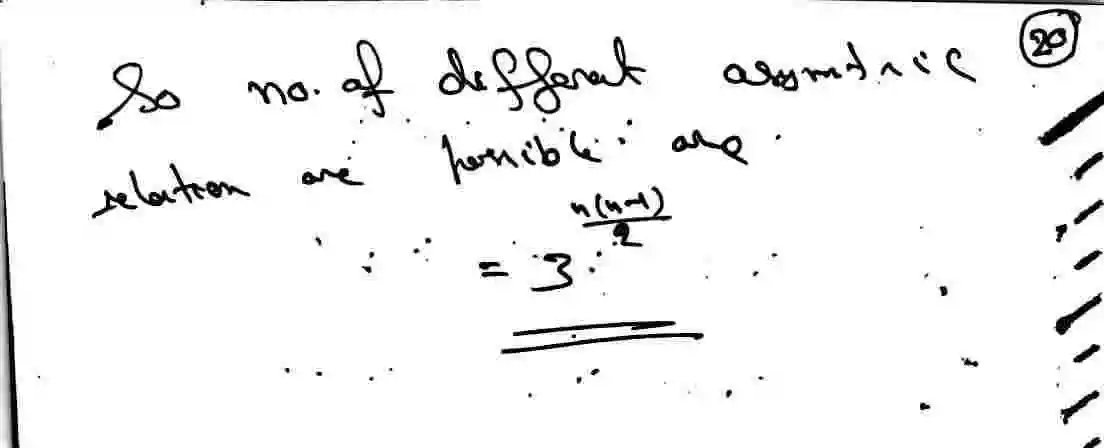 20
So no. of different asymmetric
relation are possible are
= 3^{\frac{n(n-1)}{2}}